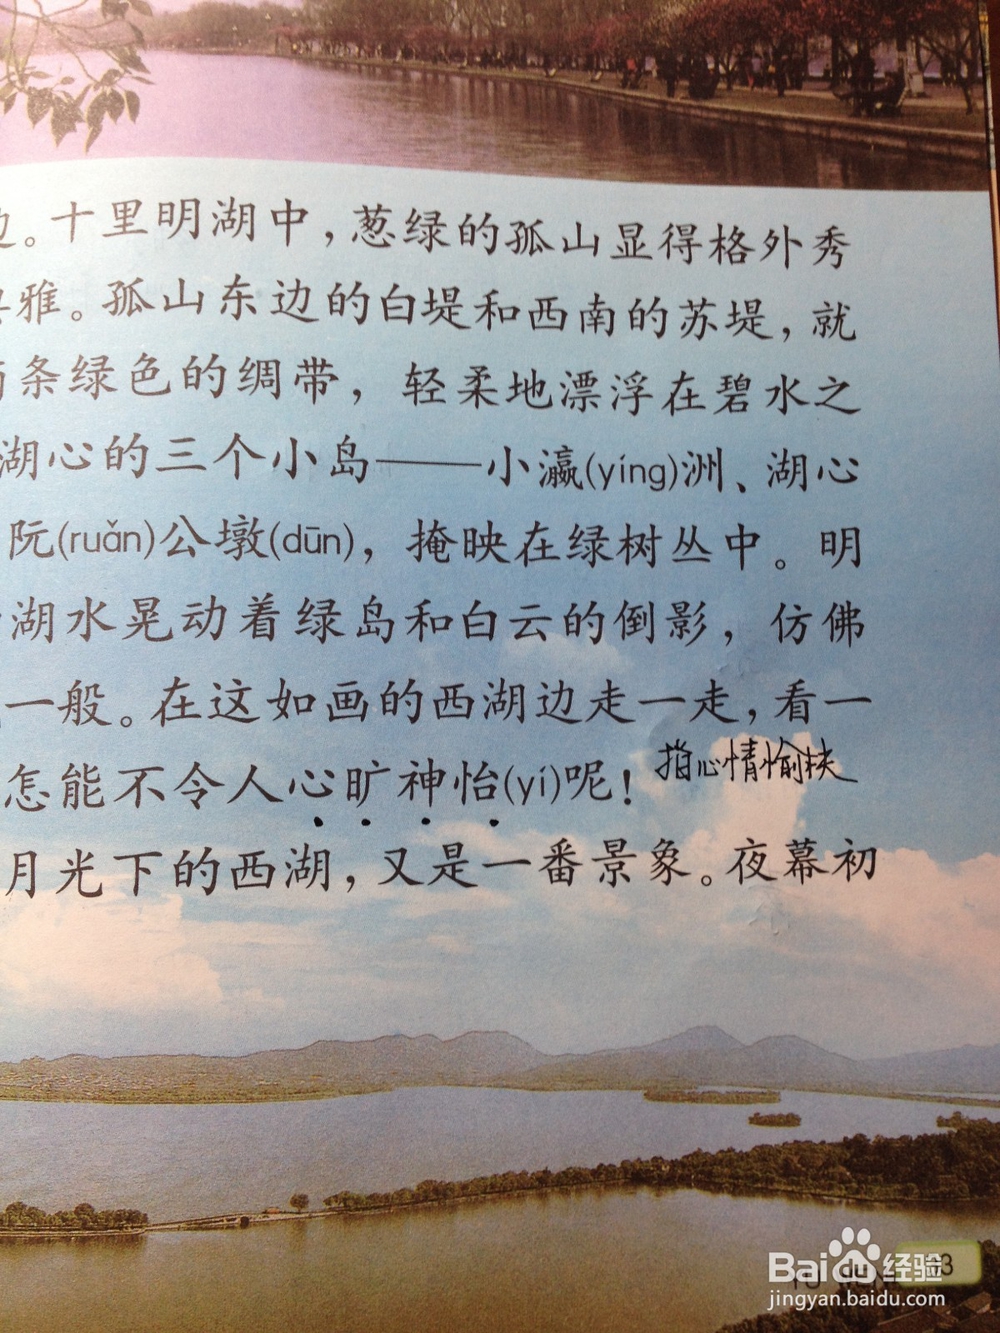 。十里明湖中，葱绿的孤山显得格外秀
雅。孤山东边的白堤和西南的苏堤，就
条绿色的绸带，轻柔地漂浮在碧水之
湖心的三个小岛——小瀛(yíng)洲、湖心
阮(ruǎn)公墩(dūn)，掩映在绿树丛中。明
湖水晃动着绿岛和白云的倒影，仿佛
一般。在这如画的西湖边走一走，看一
怎能不令人心旷神怡(yí)呢！
指心情愉快
月光下的西湖，又是一番景象。夜幕初
Baidu经验
jingyan.baidu.com